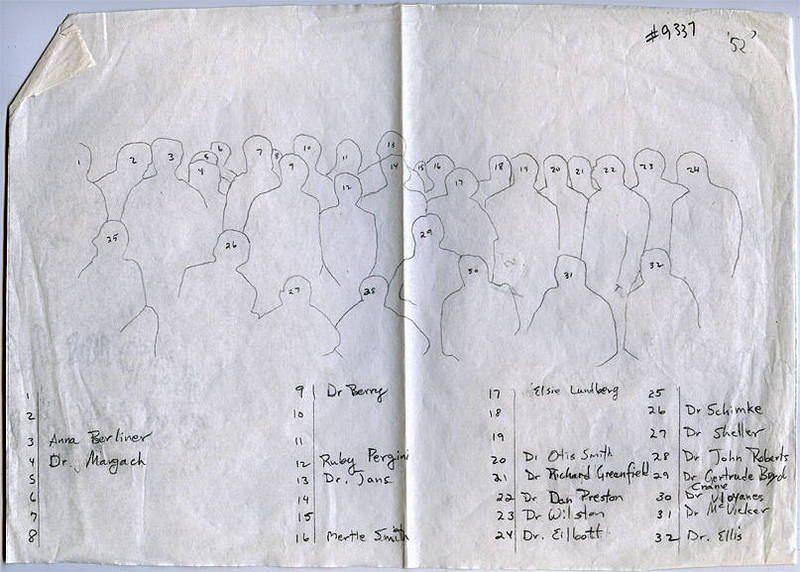 #9337 '52'
1 2 3 4 5 6 7 8 9 10 11 12 13 14 15 16 17 18 19 20 21 22 23 24
25 26 27 28 29 30 31 32
1
2
3 Anna Berliner
4 Dr. Margach
5
6
7
8
9 Dr Berry
10
11
12 Ruby Pergin
13 Dr. Jans
14
15
16 Mertle Smith
17 Elsie Lundberg
18
19
20 Dr Otis Smith
21 Dr Richard Greenfield
22 Dr Dan Preston
23 Dr Wilston
24 Dr. Eilbott
25
26 Dr Schimke
27 Dr Sheller
28 Dr John Roberts
29 Dr Gertrude
Crane
30 Dr
31 Dr McVicker
32 Dr. Ellis